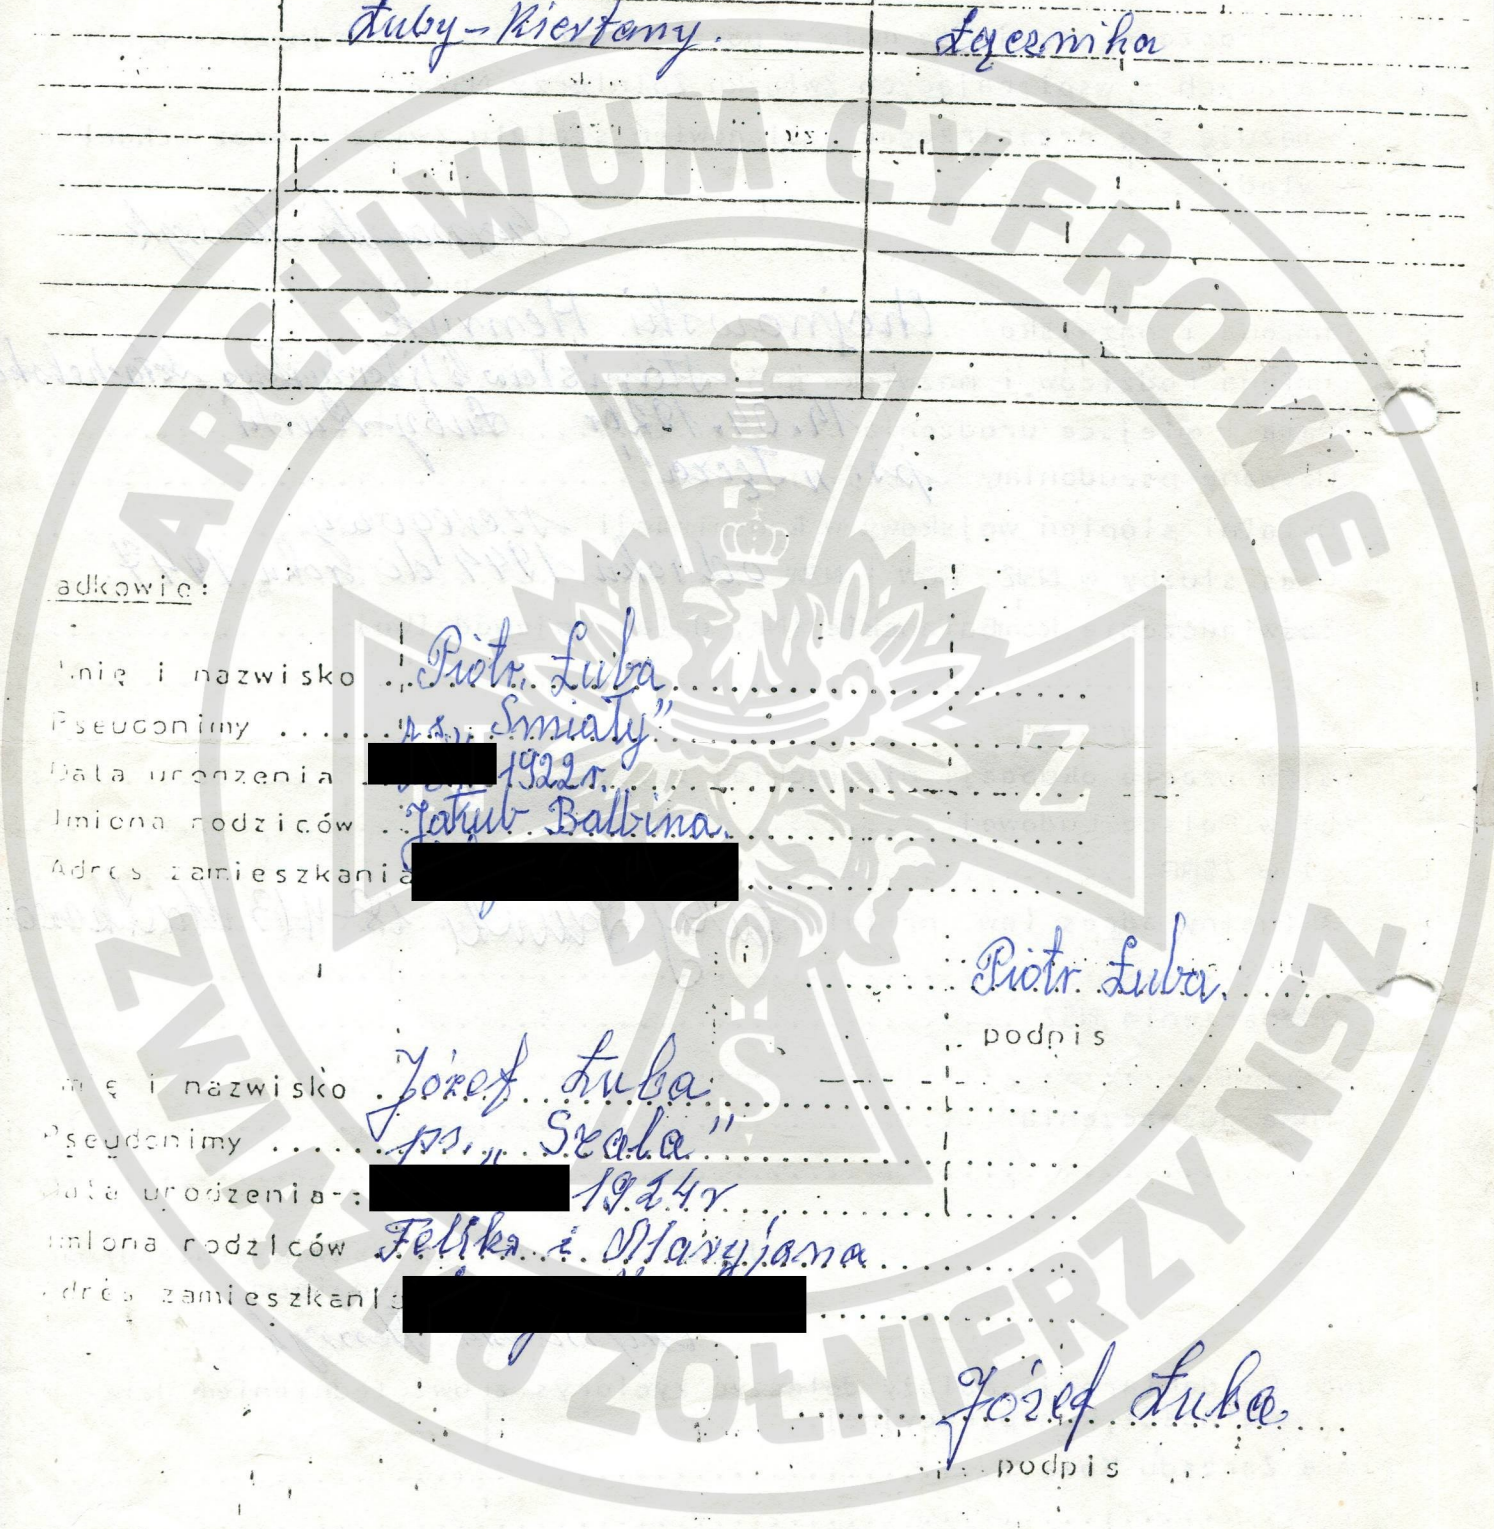 Łuby-Kiertany. Łącznika
ARCHIWUM CYFROWE
adkowie:
nię i nazwisko Piotr Łuba
Pseudonimy ps. „Śmiały”
Data urodzenia 1922r.
Imiona rodziców Jakub Balbina.
Adres zamieszkania
Piotr Łuba.
podpis
mię i nazwisko Józef Łuba
Pseudonimy ps. „Szala”
Data urodzenia-: 1924r
imiona rodziców Feliks i Maryjana
dres zamieszkania
Józef Łuba
podpis
ZWIĄZKU ŻOŁNIERZY NSZ
N
Z
S